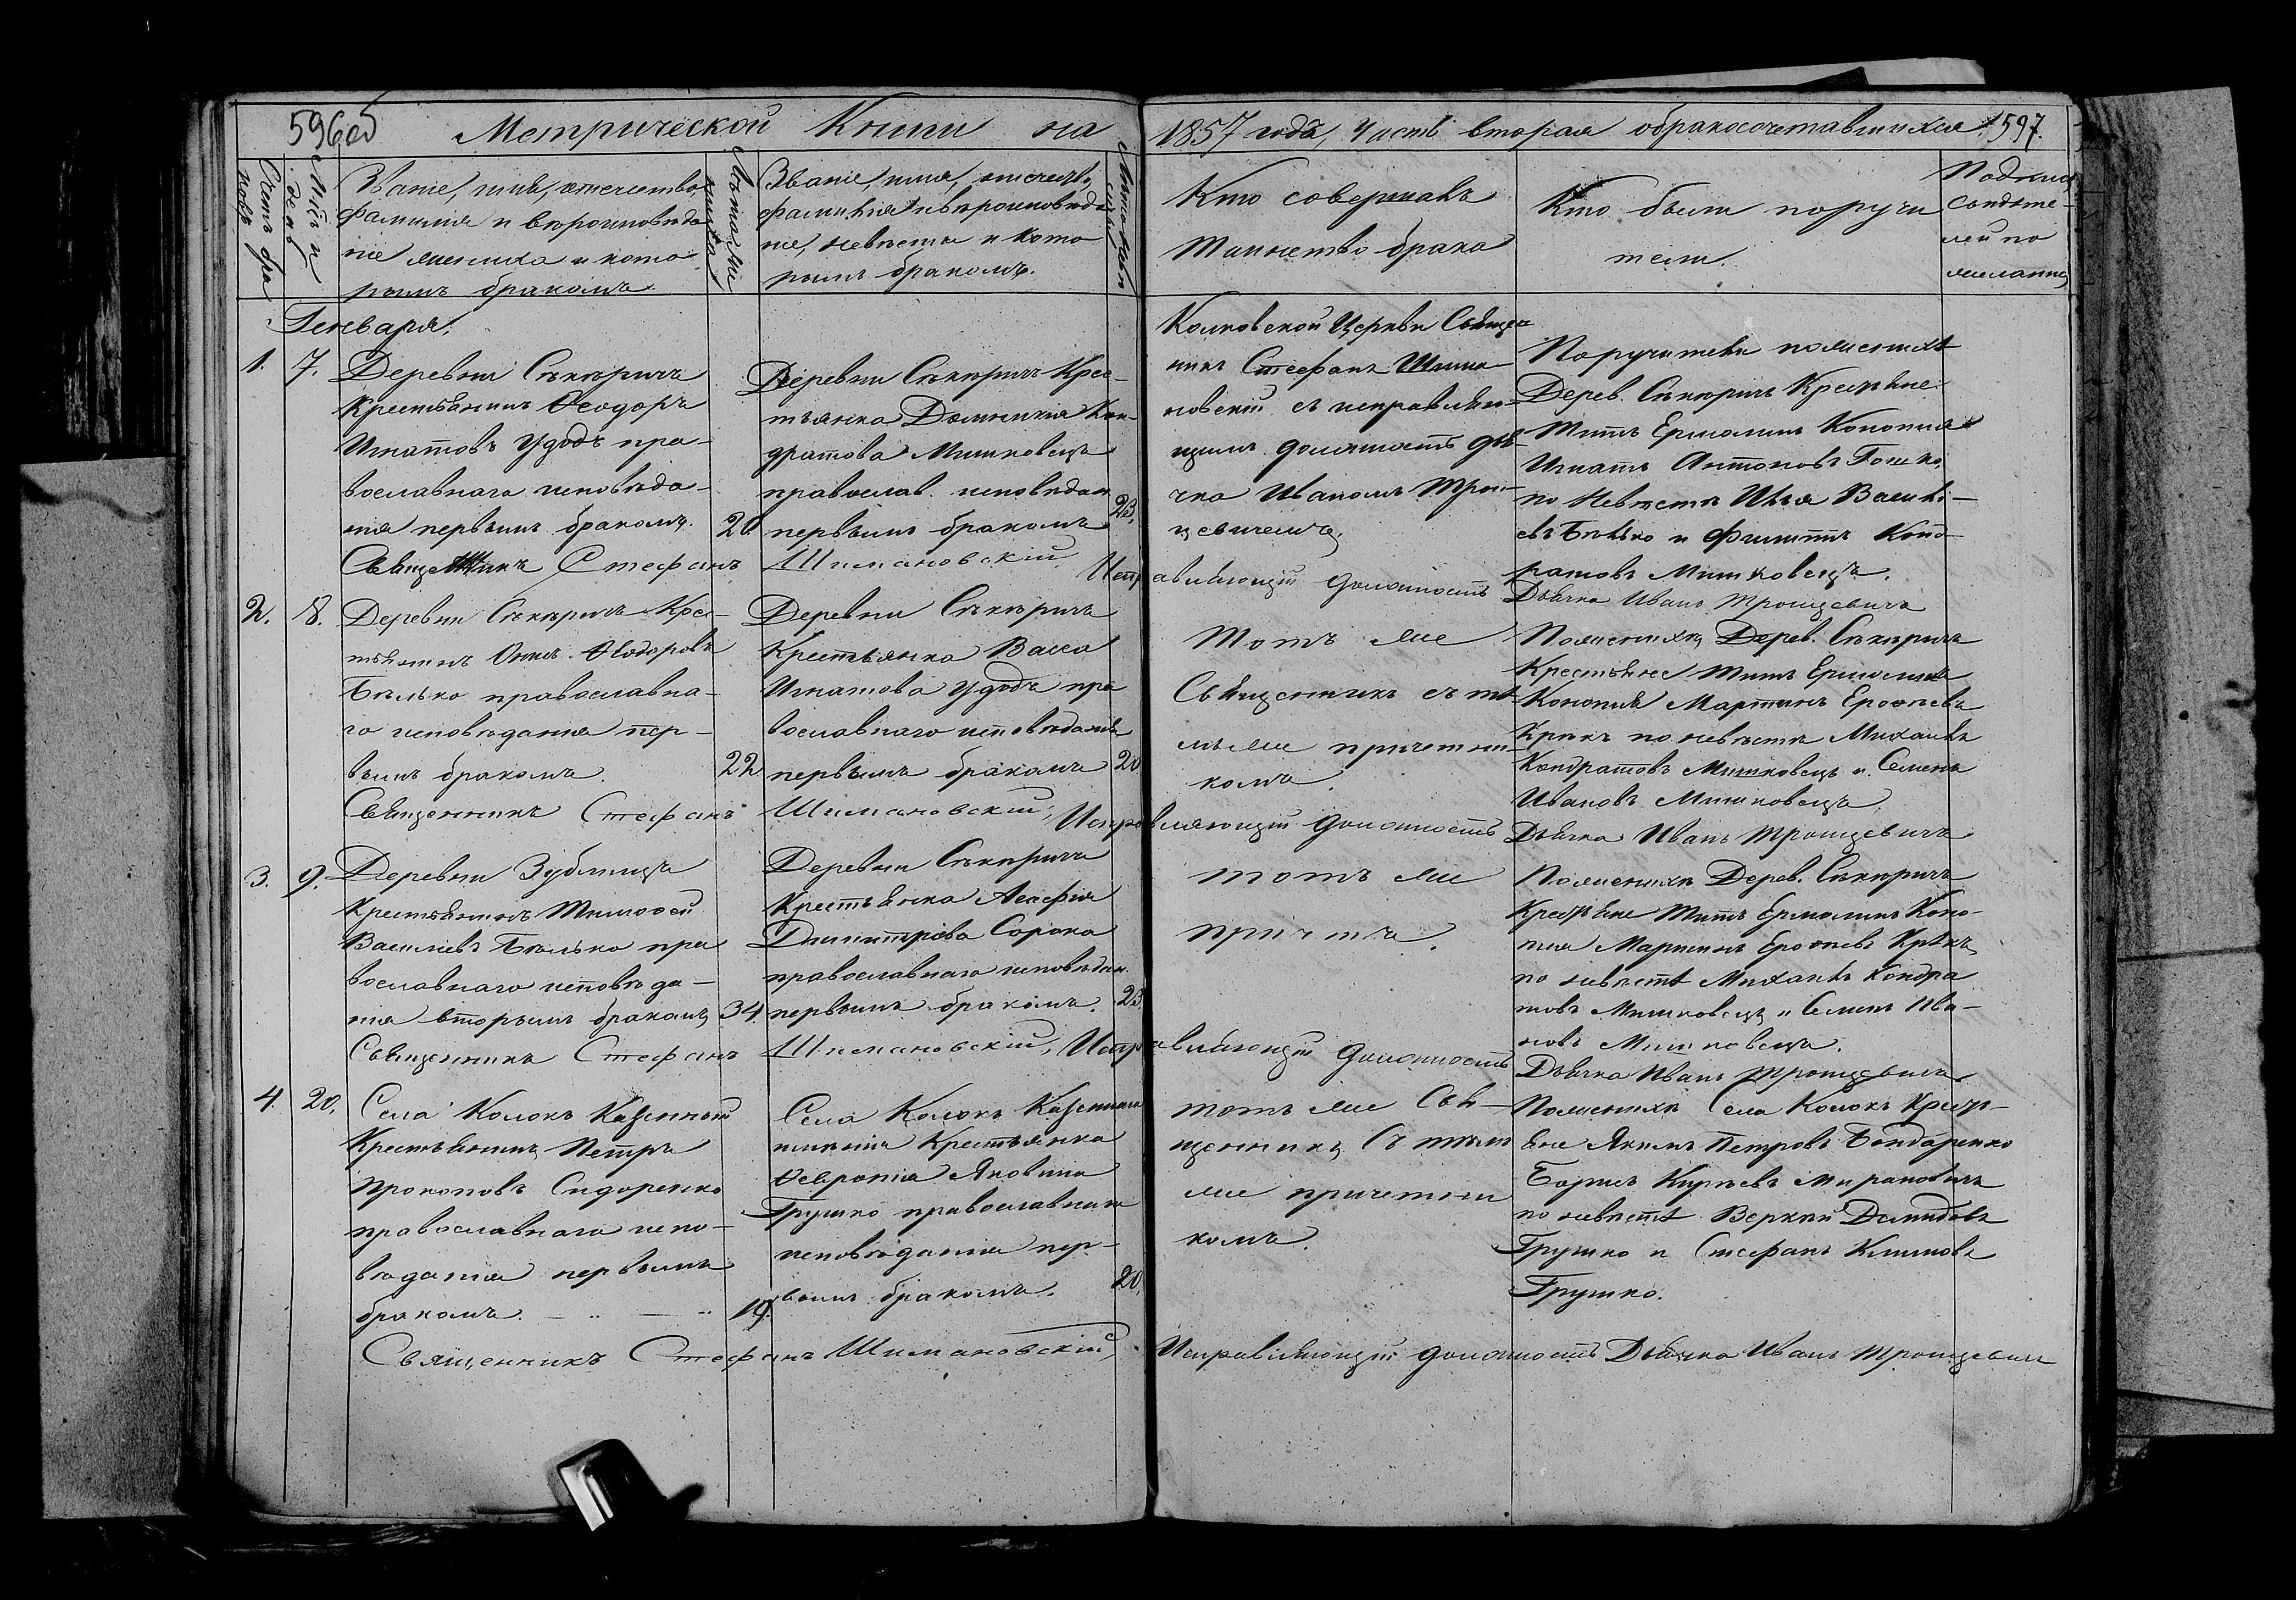 596 об
Метрической Книги на
1857 года, Часть вторая о бракосочетавшихся
597.
Счетъ бра
ковъ
Мѣс. и
день
Званіе, имя, отечество,
фамилія и вѣроисповѣда
ніе жениха и кото
рымъ бракомъ.
Лѣта же
ниха
Званіе, имя, отечест.,
фамилія и вѣроисповѣда
ніе, невѣсты и кото
рымъ бракомъ.
Лѣта невѣ
Кто совершалъ
таинство брака
Кто были поручи
тели.
Подпись
свидѣте-
лей по
желанію
Генваря.
1.
7.
Деревни Сѣкиричъ
Крестьянинъ Ѳеодоръ
Игнатовъ Удодъ пра-
вославнаго исповѣда-
нія первымъ бракомъ.
20.
Деревни Сѣкиричъ Крес-
тьянка Домникія Кон-
дратова Мишковецъ
православ. исповѣдан.
первымъ бракомъ
23.
Колковской Церкви Священ
никъ Стефанъ Шима
новскій съ исправляю-
щимъ должность дья-
чка Иваномъ Трои-
цевичемъ.
Поручители по женихѣ
Дерев. Сѣкиричъ Крестьяне
Титъ Ермолинъ Конопля
Игнатъ Антоновъ Гошко,
по Невѣстѣ Илья Василь-
евъ Бѣлько и Филиппъ Конд-
ратовъ Мишковецъ.
Священникъ Стефанъ Шимановскій, Исправляющій должность Дьячка Иванъ Троицевичъ
2.
8.
Деревни Сѣкиричъ Крес-
тьянинъ Ѳеодоровъ
Бѣлько православна-
го исповѣданія пер-
вымъ бракомъ.
22
Деревни Сѣкиричъ
Крестьянка Васса
Игнатова Удодъ пра
вославнаго исповѣданія
первымъ бракомъ
20
Тотъ же
Священникъ съ тѣ-
мъ же причетни-
комъ.
По женихѣ Дерев. Сѣкиричъ
Крестьяне Титъ Ермолинъ
Конопля Мартинъ Ерофѣевъ
по невѣстѣ Михаилъ
Кондратовъ Мишковецъ и Семенъ
Ивановъ Мишковецъ
Священникъ Стефанъ Шимановскій, Исправляющій должность Дьячка Иванъ Троицевичъ
3.
9.
Деревни Зубильица
Крестьянинъ Тимоѳей
Василіевъ Бѣлько пра
вославнаго исповѣда-
нія вторымъ бракомъ
34.
Деревни Сѣкиричъ
Крестьянка Агафія
Димитріева Сорока
православнаго исповѣдан.
первымъ бракомъ.
23.
тотъ же
причтъ.
По женихѣ Дерев. Сѣкиричъ
Крестьяне Титъ Ермолинъ Коно-
пля Мартинъ Ерофѣевъ
по невѣстѣ Михаилъ Кондра
товъ Мишковецъ и Семенъ Ива-
новъ Мишковецъ.
Священникъ Стефанъ Шимановскій, Исправляющій должность Дьячка Иванъ Троицевичъ
4.
20.
Села Колокъ Казенный
Крестьянинъ Петръ
Прокоповъ Сидоренко
православнаго испо-
вѣданія первымъ
бракомъ.
19.
Села Колокъ Казеннаго
имѣнія Крестьянка
Ѳевронія Яковина
Грушко православнаго
исповѣданія пер-
вымъ бракомъ.
20.
тотъ же Свя-
щенникъ съ тѣмъ
же причетни
комъ.
По женихѣ Села Колокъ Крест-
яне Якимъ Петровъ Бондаренко
Борисъ Мирановичъ
по невѣстѣ Демидовъ
Грушко и Стефанъ Климовъ
Грушко.
Священникъ Стефанъ Шимановскій, Исправляющій должность Дьячка Иванъ Троицевичъ